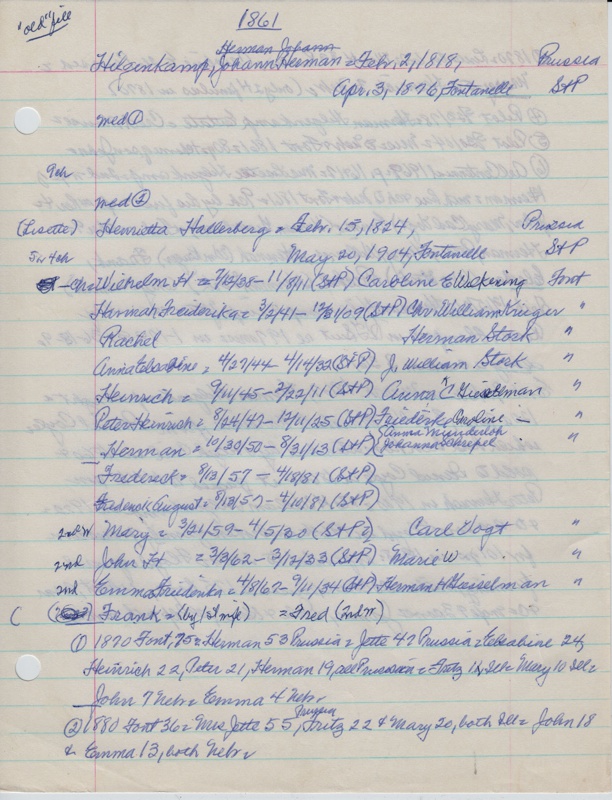 "old" file
1861
Herman Johann
Hilgenkamp, Johann Herman = Febr. 2, 1818, Prussia
Apr. 3, 1876, Fontanelle S+P
med ①
9ch
med ②
(Lisette) Henrietta Hallerberg = Febr. 15, 1824, Prussia
May 20, 1904, Fontanelle S+P
Wilhelm H = 7/12/38 - 11/8/11 (S+P) Caroline E Wekering Font
Hannah Freiderika = 3/2/41 - 12/31/09 (S+P) Chr. William Krieger "
Rachel Herman Stork "
Anna Elsabine = 4/27/44 - 4/14/22 (S+P) J. William Stork "
Heinrich = 9/11/45 - 2/22/11 (S+P) Anna C "
Peter Heinrich = 8/24/47 - 12/11/25 (S+P) Friederke Caroline -
Herman = 10/30/50 - 8/31/13 (S+P) Anna Munderloh "
Johanna
Frederick = 8/13/57 - 4/8/81 (S+P)
August = 8/13/57 - 4/10/81 (S+P)
2nd W Mary = 3/21/59 - 4/5/30 (S+P) Carl Vogt "
2nd John H = 3/3/62 - 3/12/33 (S+P) Marie W "
2nd Emma Freidenka = 4/8/67 - 9/11/34 (S+P) Herman H "
( Frank = (by 1st wife) = Fred (2nd W)
① 1870 Font, 75 = Herman 53 Prussia = Jette 47 Prussia = Elsabine 24,
Heinrich 22, Peter 21, Herman 19, all Prussia = Fritz 12, Ill = Mary 10 Ill =
John 7 Nebr = Emma 4 Nebr.
Prussia
② 1880 Font 36 = Mrs Jette 55, Fritz 22 & Mary 20, both Ill = John 18
& Emma 13, both Nebr.